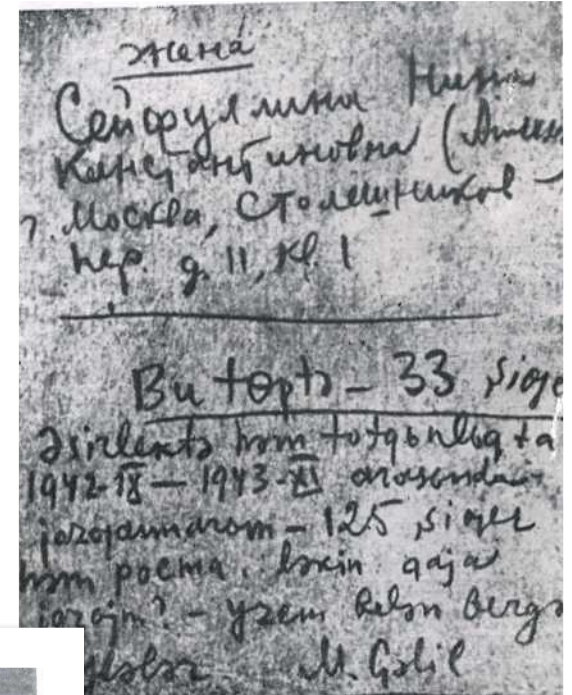 жена
Сейфуллина Нина
Константиновна
г. Москва, Столешников
пер. д. 11, кв. 1
Bu - 33 şige
Əsirlektə həm totqьnlьqta
1942-IX — 1943-XI arasьnda
125 şiger
həm poema. Ləkin qaja
jazajm? - yzem belən bergə
M. Gəlil